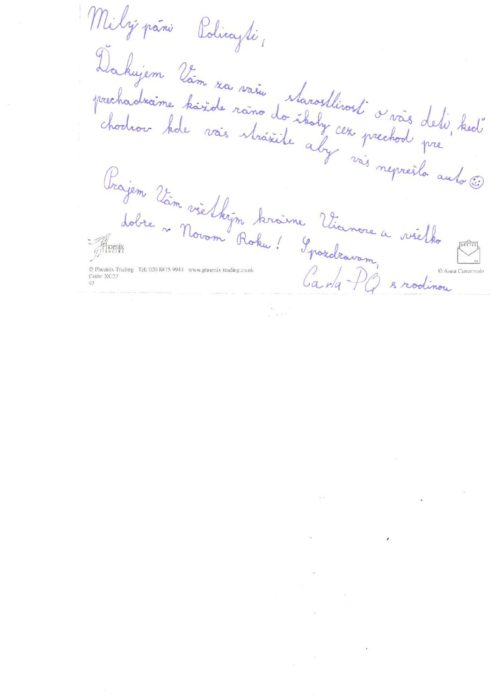 Milý páni Policajti,
Ďakujem Vám za vašu starostlivosť o vás deti, keď
prechádzáme každe ráno do školy cez prechod pre
chodcov kde vás strážite aby vás neprešlo auto ☺
Prajem Vám všetkým krásne Vianoce a všetko
dobre v Novom Roku! S pozdravom,
s rodinou
Phoenix
TRADING
© Phoenix Trading Tel: 020 8875 9944 www.phoenix-trading.co.uk
© Anna